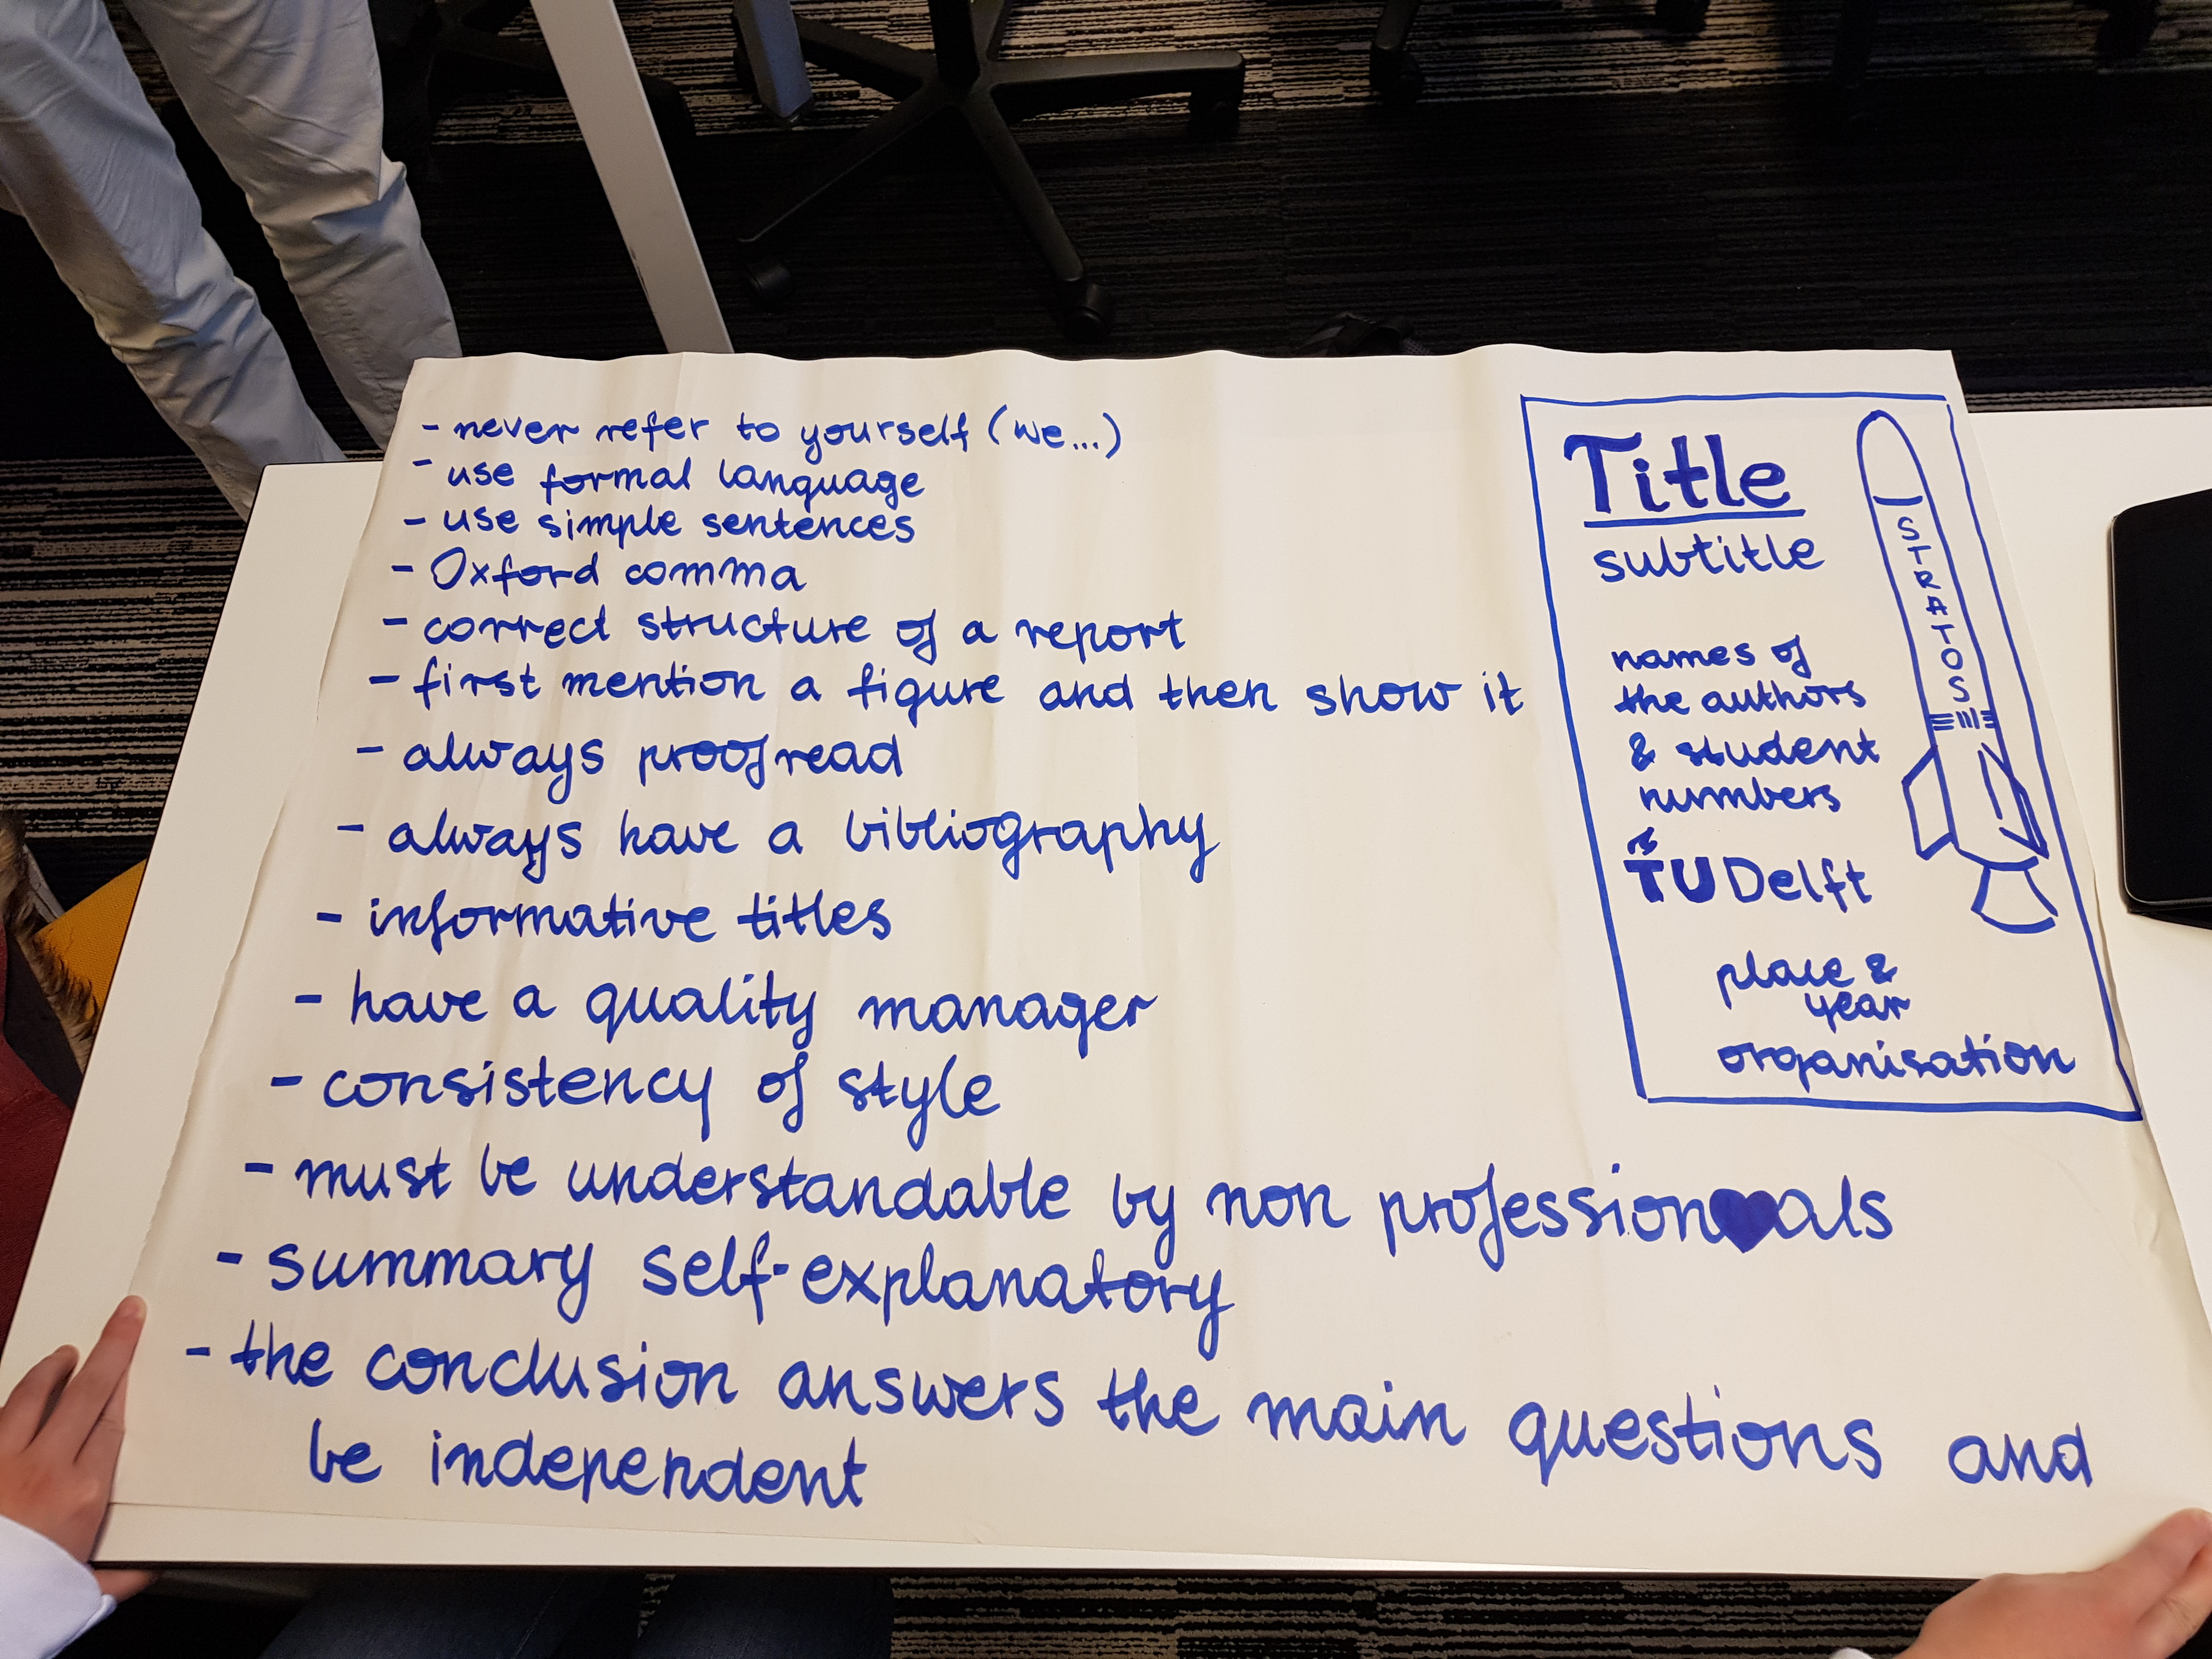 - never refer to yourself (we...)
- use formal language
- use simple sentences
- Oxford comma
- correct structure of a report
- first mention a figure and then show it
- always proofread
- always have a bibliography
- informative titles
- have a quality manager
- consistency of style
- must be understandable by non profession♥als
- summary self-explanatory
- the conclusion answers the main questions and
be independent
Title
subtitle
names of
the authors
& student
numbers
TU Delft
place &
year
organisation
STRATOS